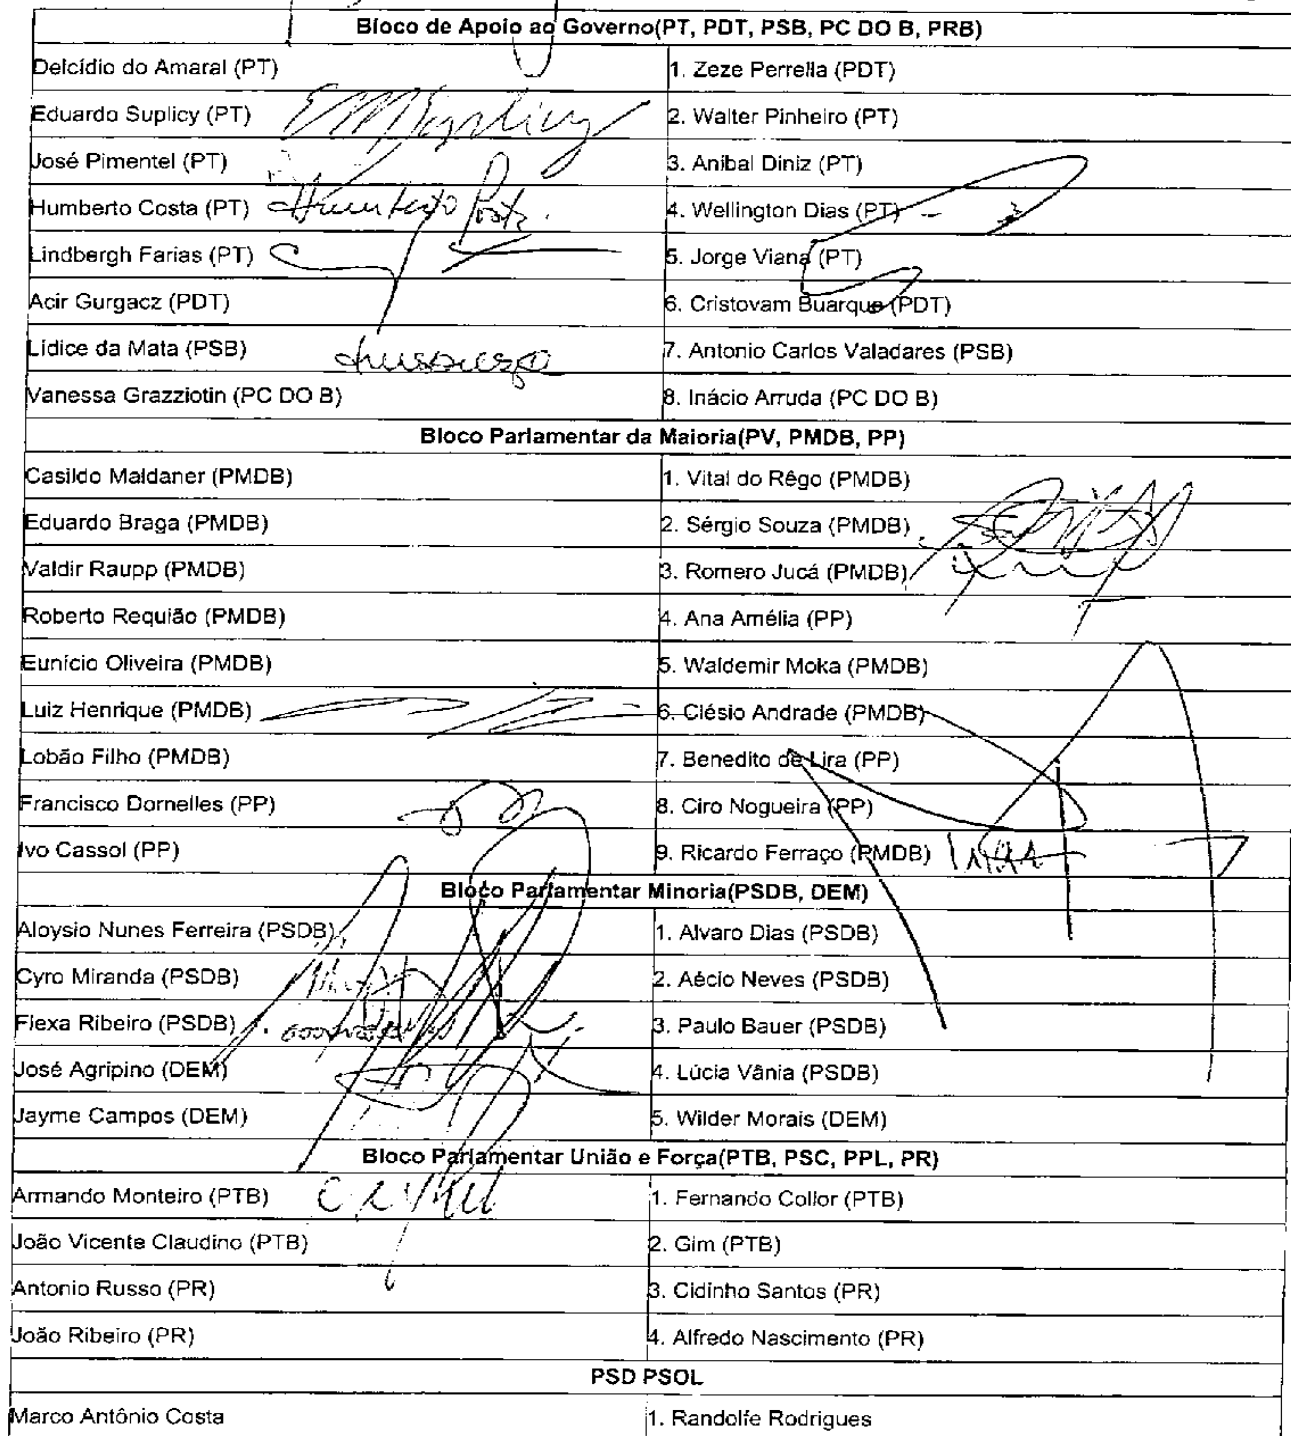 Bloco de Apoio ao Governo(PT, PDT, PSB, PC DO B, PRB)
Delcídio do Amaral (PT) 1. Zeze Perrella (PDT)
Eduardo Suplicy (PT) 2. Walter Pinheiro (PT)
José Pimentel (PT) 3. Anibal Diniz (PT)
Humberto Costa (PT) Humberto Costa. 4. Wellington Dias (PT)
Lindbergh Farias (PT) 5. Jorge Viana (PT)
Acir Gurgacz (PDT) 6. Cristovam Buarque (PDT)
Lídice da Mata (PSB) 7. Antonio Carlos Valadares (PSB)
Vanessa Grazziotin (PC DO B) 8. Inácio Arruda (PC DO B)
Bloco Parlamentar da Maioria(PV, PMDB, PP)
Casildo Maldaner (PMDB) 1. Vital do Rêgo (PMDB)
Eduardo Braga (PMDB) 2. Sérgio Souza (PMDB)
Valdir Raupp (PMDB) 3. Romero Jucá (PMDB)
Roberto Requião (PMDB) 4. Ana Amélia (PP)
Eunício Oliveira (PMDB) 5. Waldemir Moka (PMDB)
Luiz Henrique (PMDB) 6. Clésio Andrade (PMDB)
Lobão Filho (PMDB) 7. Benedito de Lira (PP)
Francisco Dornelles (PP) 8. Ciro Nogueira (PP)
Ivo Cassol (PP) 9. Ricardo Ferraço (PMDB)
Bloco Parlamentar Minoria(PSDB, DEM)
Aloysio Nunes Ferreira (PSDB) 1. Alvaro Dias (PSDB)
Cyro Miranda (PSDB) 2. Aécio Neves (PSDB)
Flexa Ribeiro (PSDB) 3. Paulo Bauer (PSDB)
José Agripino (DEM) 4. Lúcia Vânia (PSDB)
Jayme Campos (DEM) 5. Wilder Morais (DEM)
Bloco Parlamentar União e Força(PTB, PSC, PPL, PR)
Armando Monteiro (PTB) 1. Fernando Collor (PTB)
João Vicente Claudino (PTB) 2. Gim (PTB)
Antonio Russo (PR) 3. Cidinho Santos (PR)
João Ribeiro (PR) 4. Alfredo Nascimento (PR)
PSD PSOL
Marco Antônio Costa 1. Randolfe Rodrigues